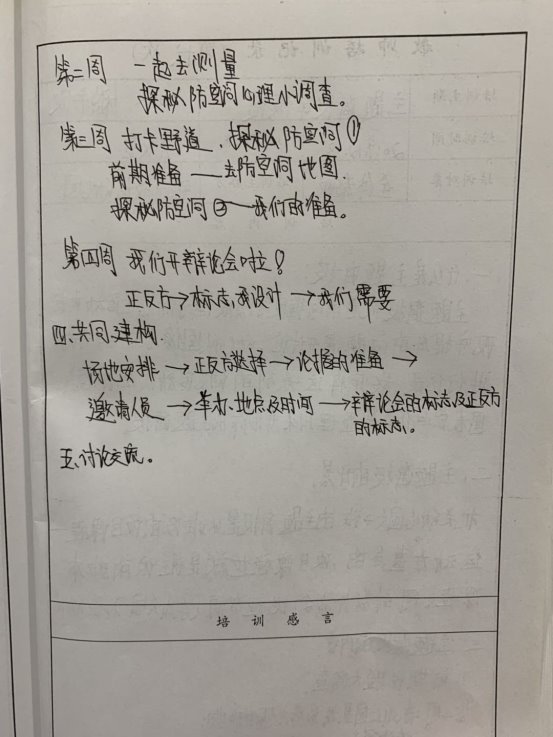 第二周 一起去测量
探秘防空洞心理小调查。
第三周 打卡野道、探秘防空洞①
前期准备——去防空洞地图.
探秘防空洞②——我们的准备。
第四周 我们开辩论会啦!
正反方→标志我设计→我们需要
四.共同建构.
场地安排→正反方选择→论据的准备→
邀请人员→举办地点及时间→辩论会的标志及正反方
的标志。
五、讨论交流。
培训感言